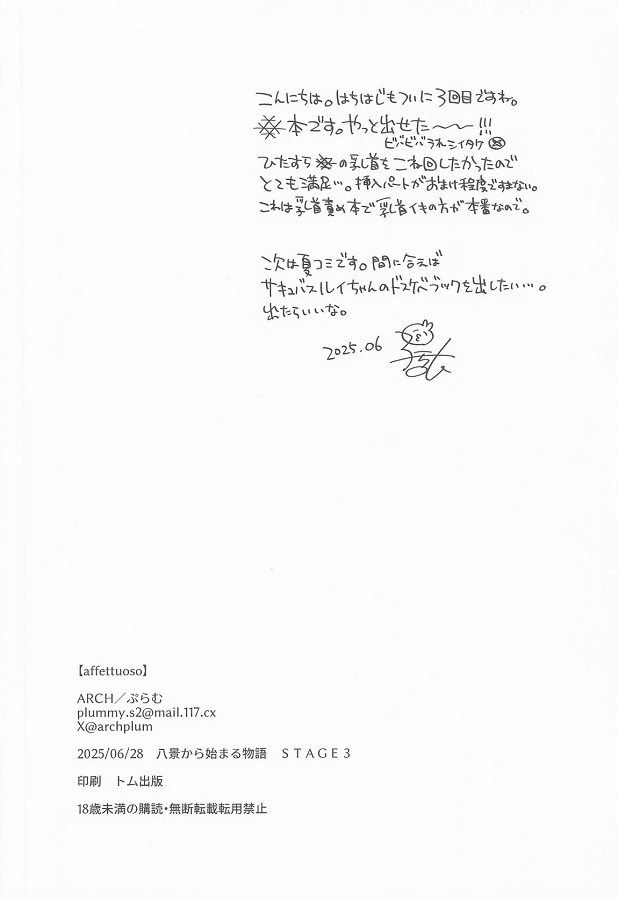 こんにちは。はちはじもついに3回目ですね。
※本です。やっと出せた〜〜!!!
ビバビバラれシイタケ
ひたすら※の乳首をこね回したかったので
とても満足…。挿入パートがおまけ程度ですまない。
これは乳首責め本で乳首イキの方が本番なので。
次は夏コミです。間に合えば
サキュバスルイちゃんのドスケベブックを出したい…。
出たらいいな。
2025.06
【affettuoso】
ARCH／ぷらむ
plummy.s2@mail.117.cx
X@archplum
2025/06/28 八景から始まる物語 STAGE3
印刷 トム出版
18歳未満の購読・無断転載転用禁止